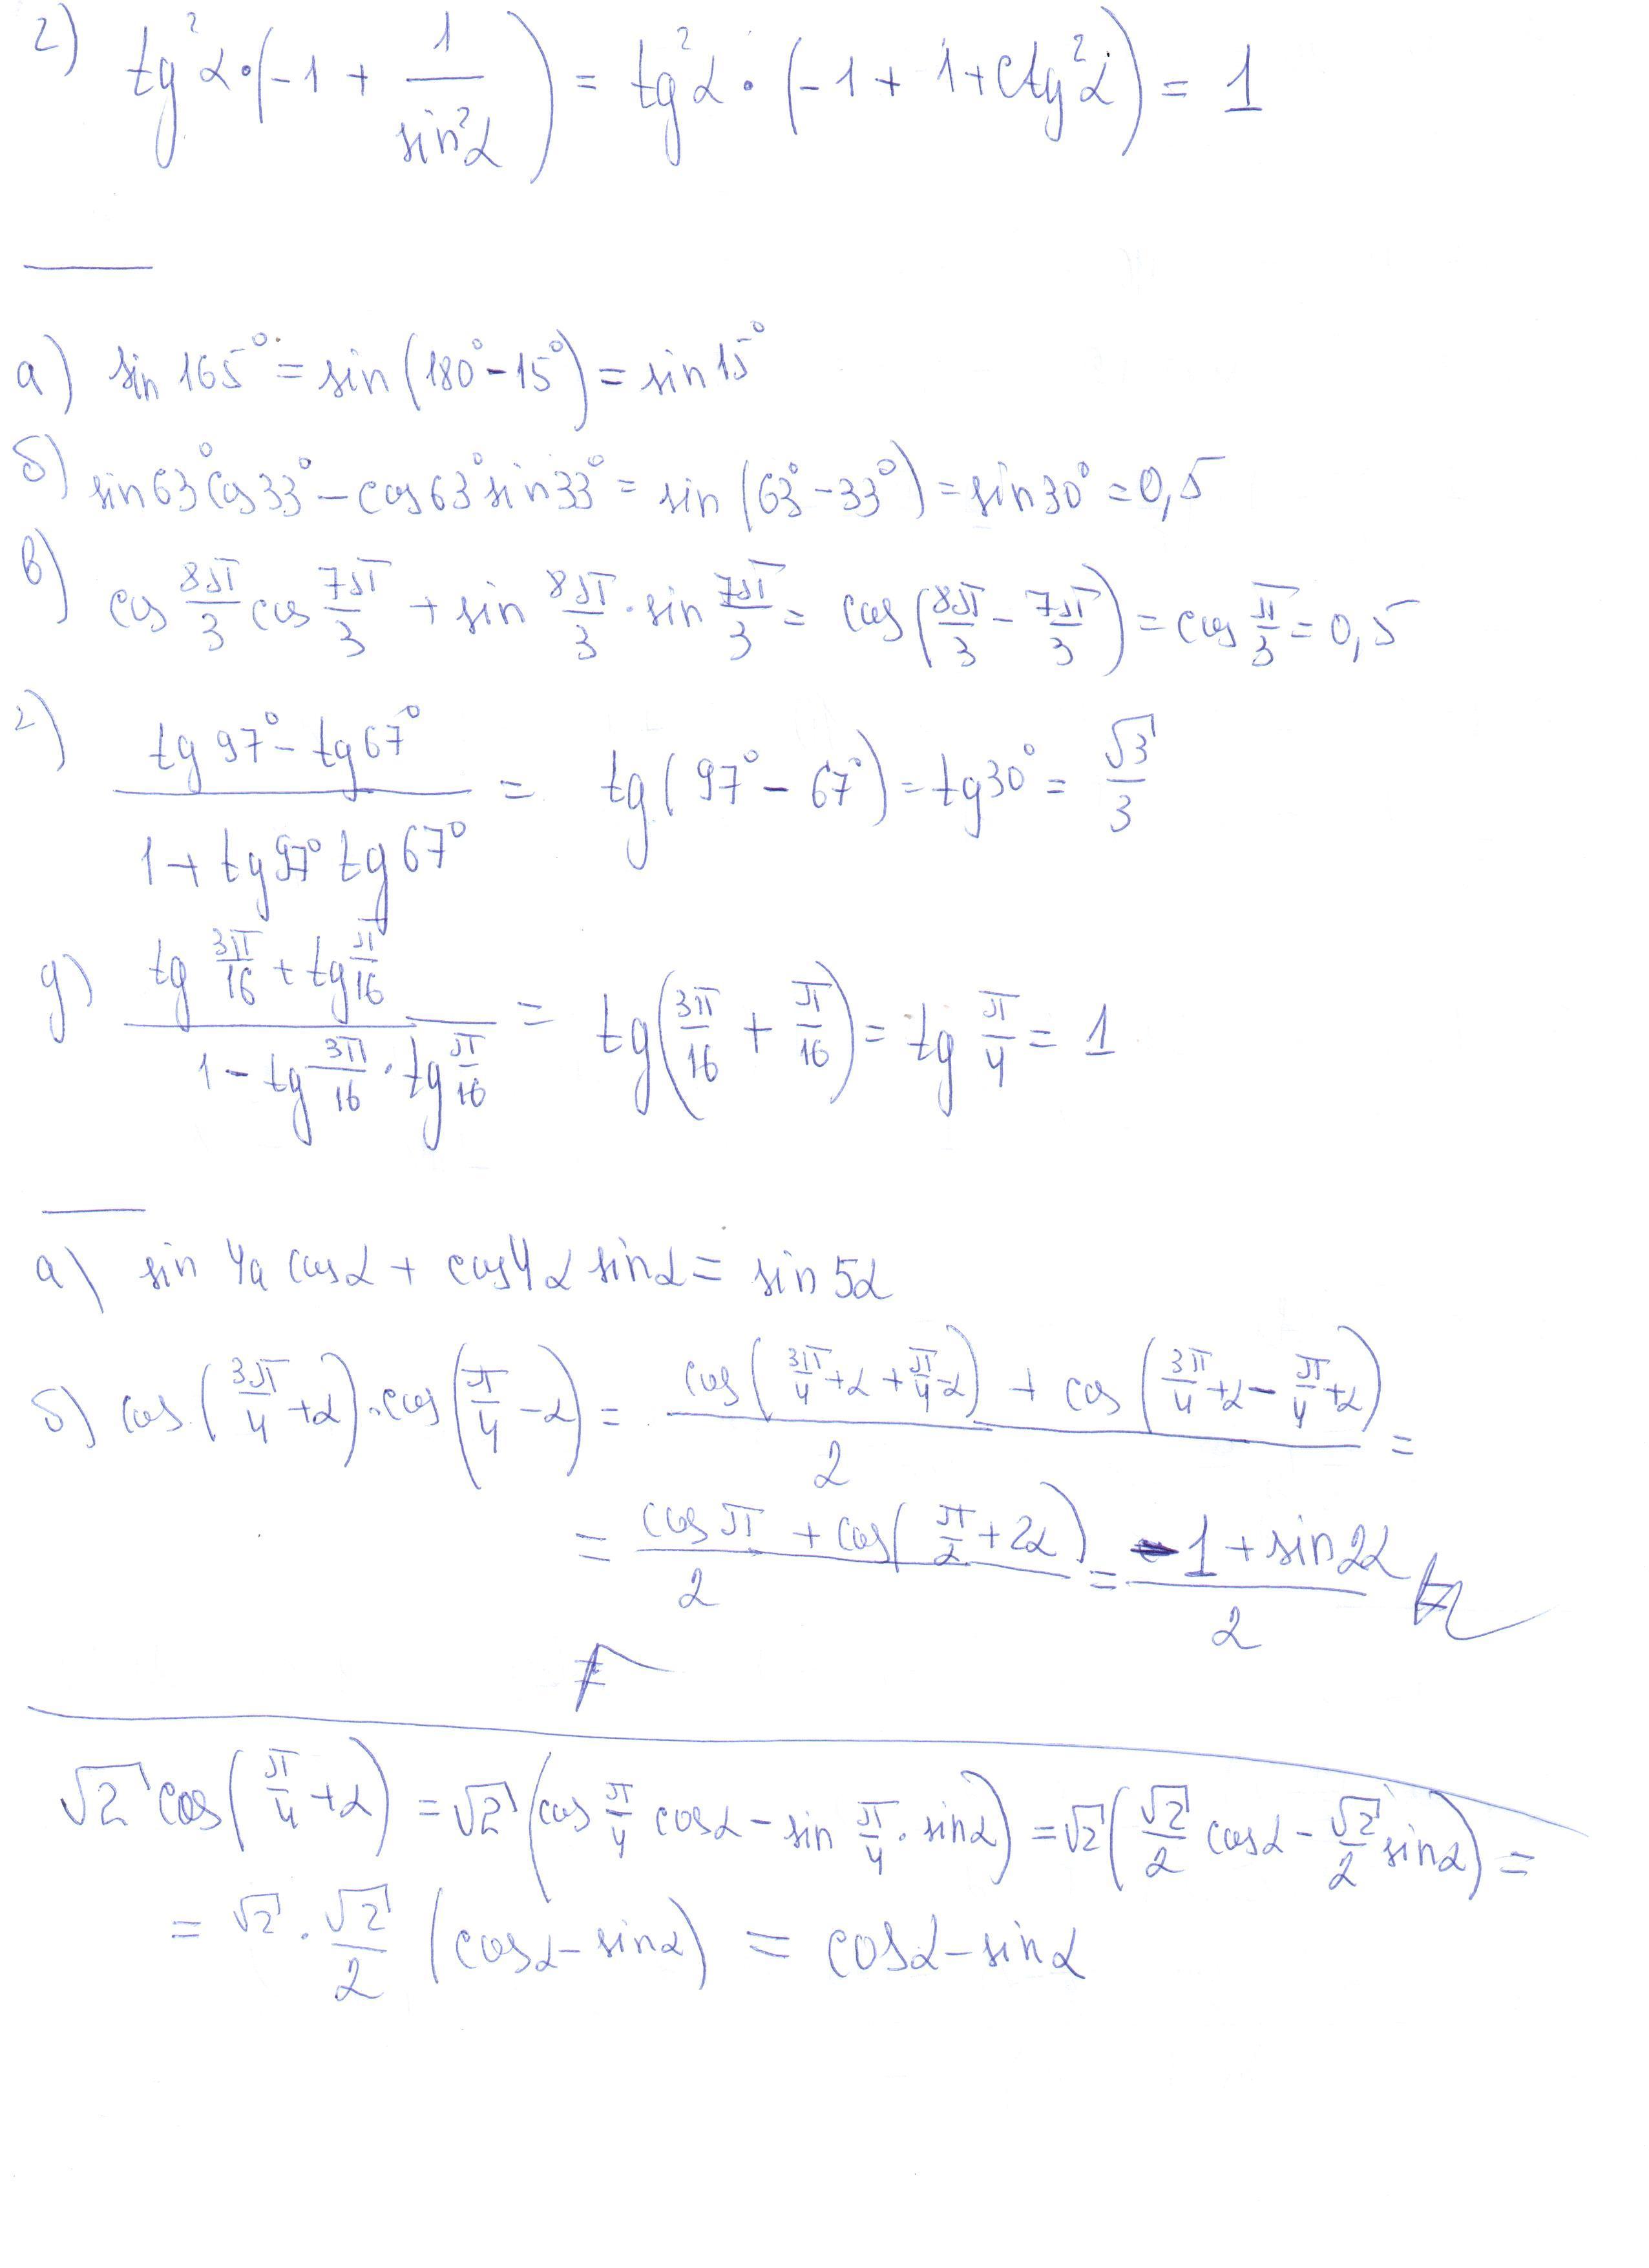 г) tg²α·(-1 + 1/sin²α) = tg²α · (-1 + 1+ctg²α) = 1
а) sin 165° = sin (180° - 15°) = sin 15°
б) sin63°cos33° - cos63°sin33° = sin (63° - 33°) = sin30° = 0,5
в) cos 8π/3 cos 7π/3 + sin 8π/3 · sin 7π/3 = cos(8π/3 - 7π/3) = cos π/3 = 0,5
г) (tg 97° - tg 67°)/(1 + tg 97° tg 67°) = tg (97° - 67°) = tg30° = √3/3
д) (tg 3π/16 + tg π/16)/(1 - tg 3π/16 · tg π/16) = tg(3π/16 + π/16) = tg π/4 = 1
а) sin 4α cosα + cos4α sinα = sin 5α
б) cos (3π/4 + α) · cos(π/4 - α) = (cos (3π/4 + α + π/4 - α) + cos (3π/4 + α - π/4 + α))/2 =
= (cos π + cos(π/2 + 2α))/2 = (-1 + sin2α)/2
√2 cos(π/4 + α) = √2 (cos π/4 cosα - sin π/4 · sinα) = √2 (√2/2 cosα - √2/2 sinα) =
= √2 · √2/2 (cosα - sinα) = cosα - sinα